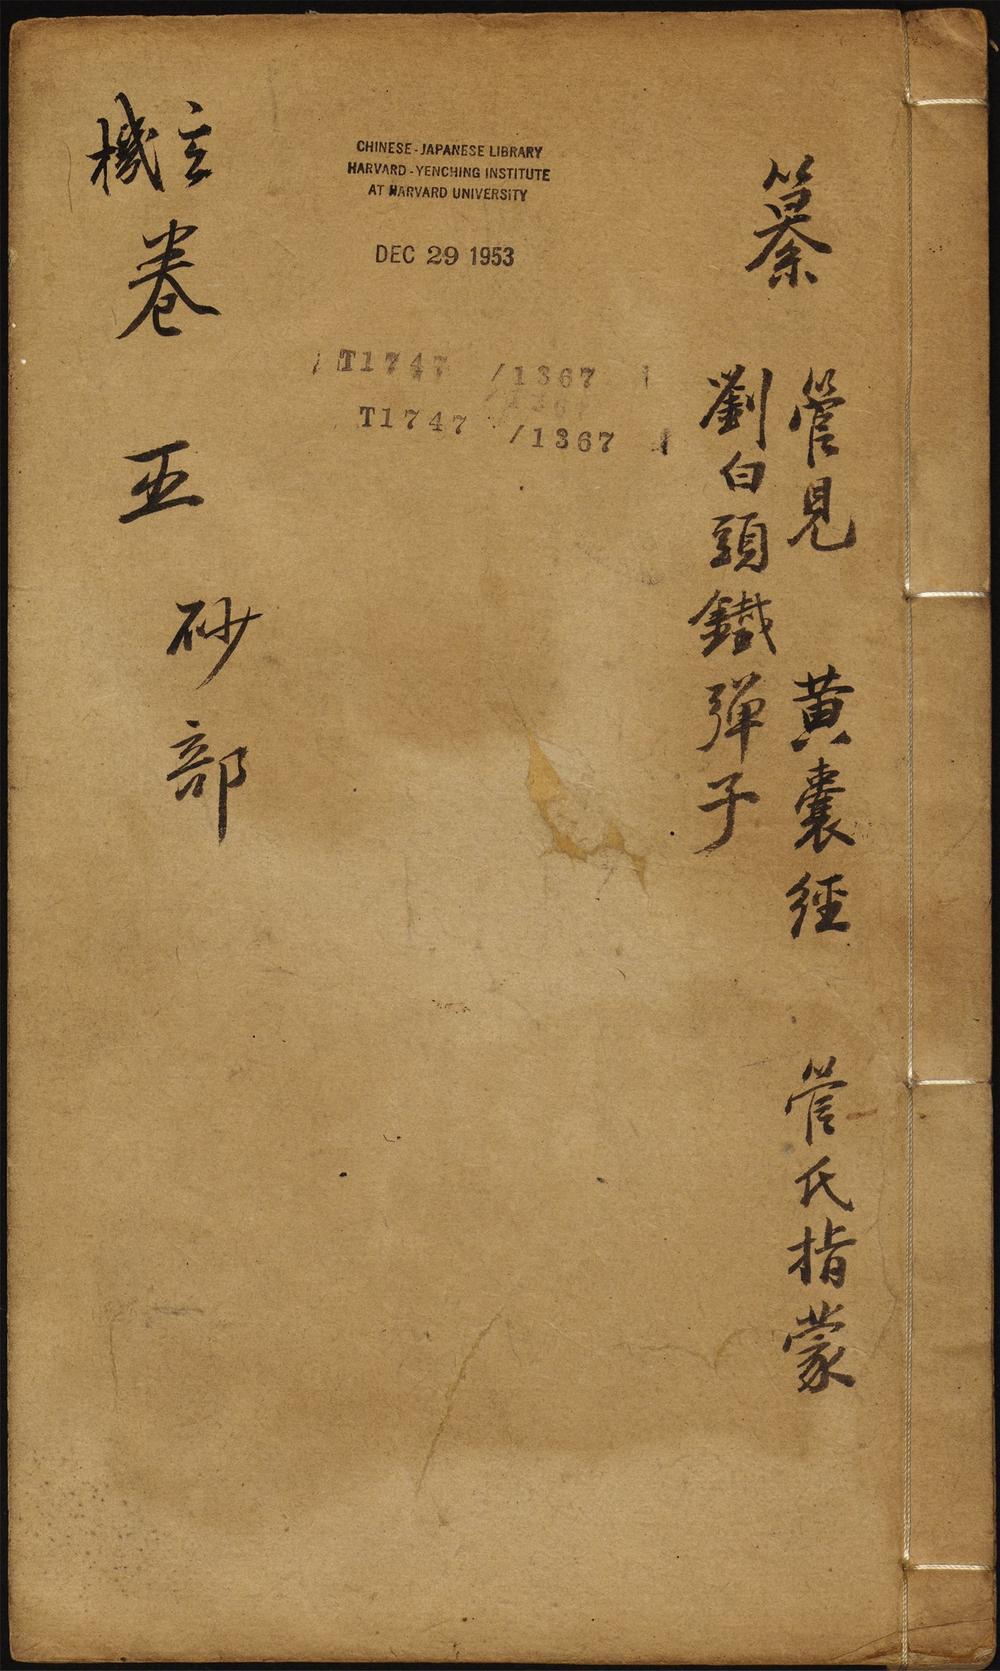 纂
管見 黃囊經 管氏指蒙
劉白頭鐵彈子
CHINESE-JAPANESE LIBRARY
HARVARD-YENCHING INSTITUTE
AT HARVARD UNIVERSITY
DEC 29 1953
T1747 /1367
T1747 /1367
玄機
卷五
砂部